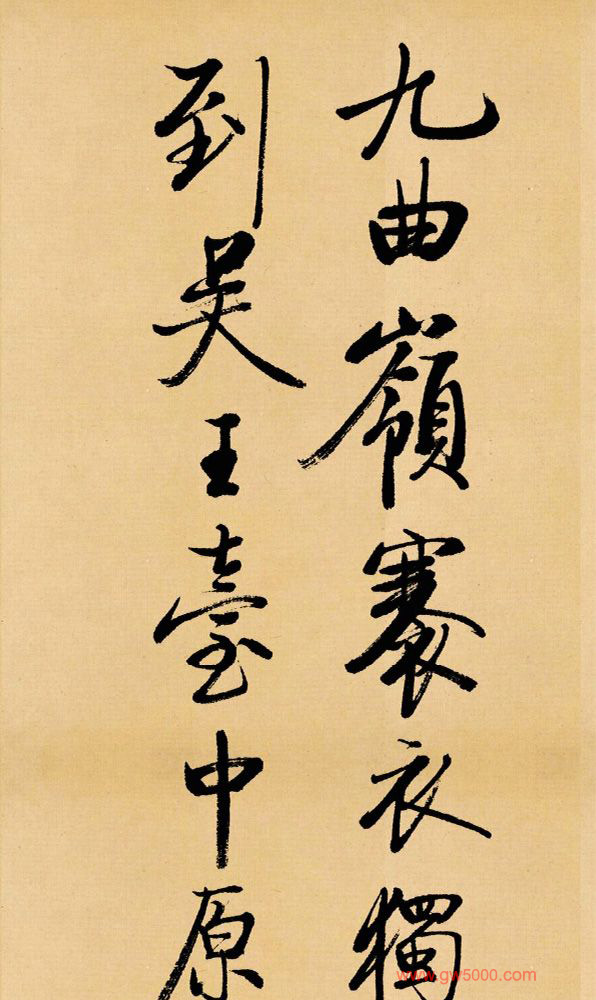 九曲嶺褰衣獨
到吴王臺中原
www.gw5000.com